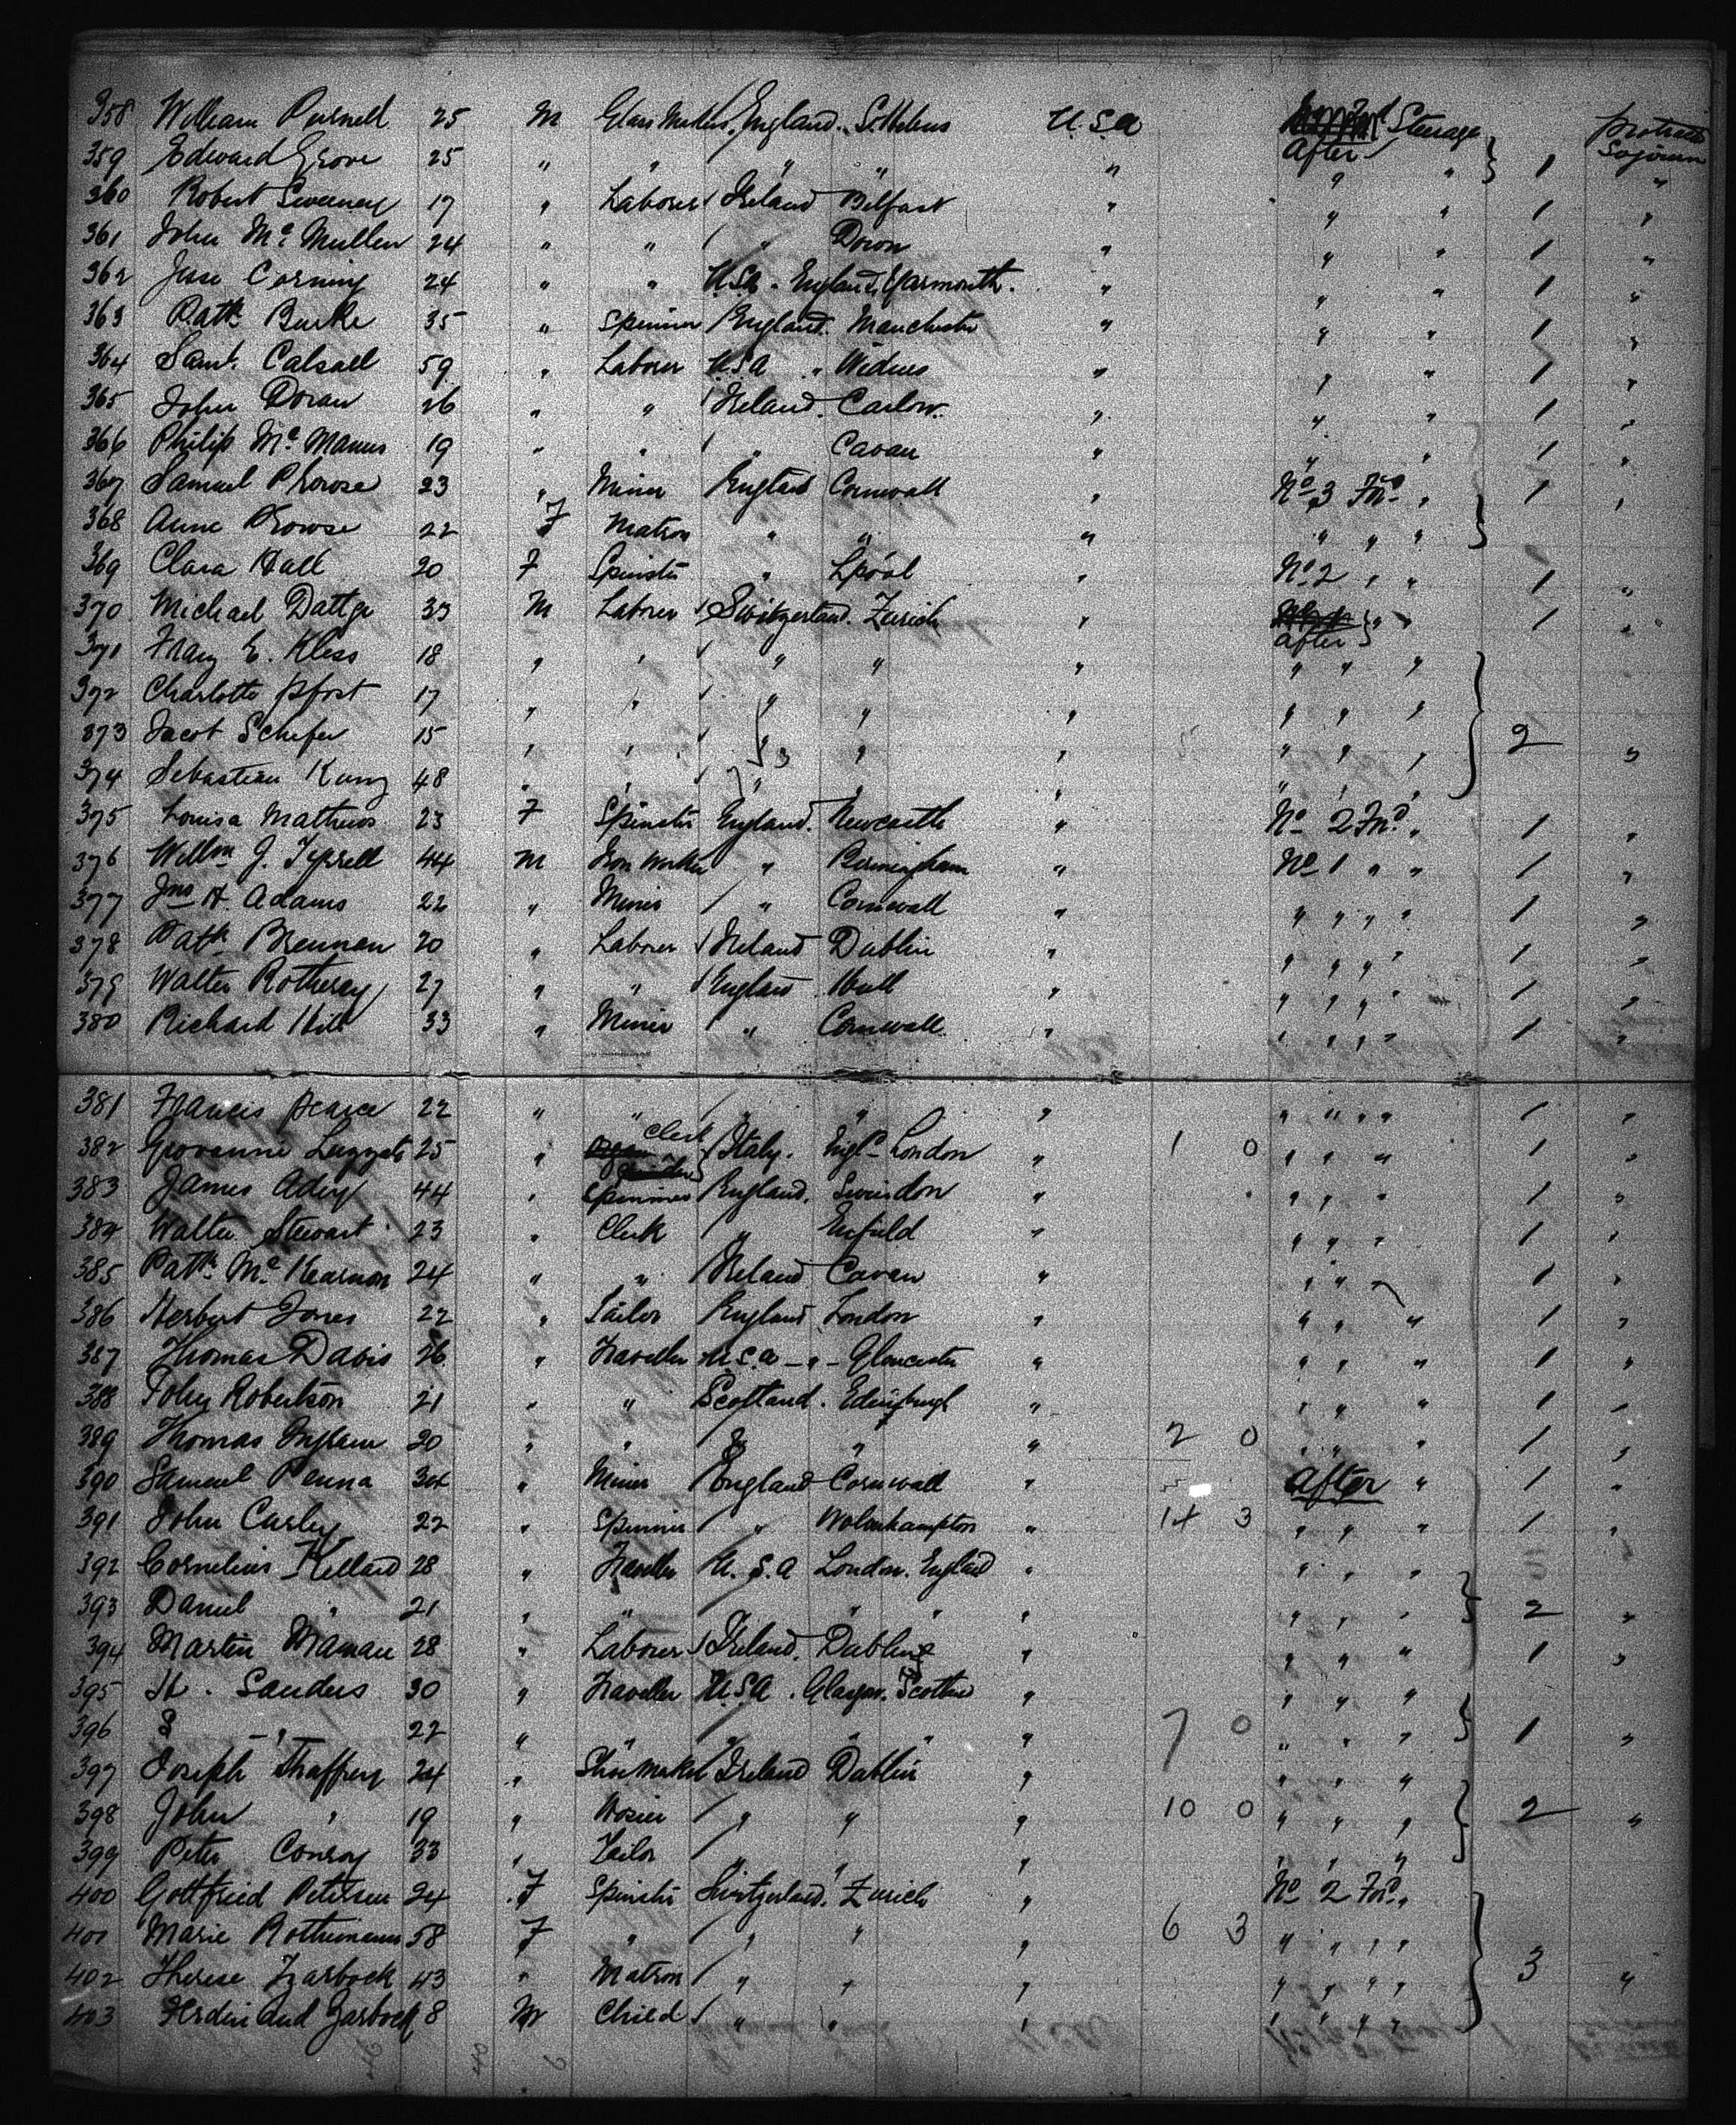 358 William Pursell 25 M Glass Maker England. St Helens U.S.A Steerage protracted
359 Edward Grove 25 " " " " " After " 1 Sojourn
360 Robert Sweeney 17 " Laborer Ireland Belfast " " " 1 "
361 John Mc Mullen 24 " " " Down " " " 1 "
362 Jesse Corning 24 " " U.S.A. England, Yarmouth. " " " 1 "
363 Patk Burke 35 " Spinner England. Manchester " " " 1 "
364 Saml. Calsall 59 " Laborer U.S.A " Widnes " " " 1 "
365 John Doran 26 " " Ireland. Carlow. " " " 1 "
366 Philip Mc Manus 19 " " " Cavan " " " 1 "
367 Samuel Prowse 23 " Miner England Cornwall " No 3 Fd " 1 "
368 Anne Prowse 22 F Matron " " " " " "
369 Clara Hall 20 F Spinster " Lpool " No 2 " " 1 "
370 Michael Dattge 33 M Laborer Switzerland. Zurich " After " " 1 "
371 E. Kless 18 " " " " " " " "
372 Charlotte Pfost 17 " " " " " " " "
373 Jacob Schefer 15 " " " " " " " " 2 "
374 Sebastian Kung 48 " " " " " " "
375 Louisa Mathews 23 F Spinster England. Newcastle " No 2 Fd " 1 "
376 Willm J. Tyrrell 44 M Iron Worker " Birmingham " No 1 " " 1 "
377 Jno H. Adams 22 " Miner " Cornwall " " " " " 1 "
378 Patk Brennan 20 " Laborer Ireland Dublin " " " " " 1 "
379 Walter Rotheray 27 " " England Hull " " " " " 1 "
380 Richard Hill 33 " Miner " Cornwall " " " " " 1 "
381 Francis Pearce 22 " " " " " " " " " 1 "
382 Giovanni Luzzati 25 " Clerk Italy. Engld London " 1 0 " " " 1 "
383 James Adey 44 " Spinner England. Swindon " " " " 1 "
384 Walter Stewart 23 " Clerk " Enfield " " " " 1 "
385 Patk Mc Kearnon 24 " " Ireland Cavan " " " " 1 "
386 Herbert Jones 22 " Sailor England London " " " " 1 "
387 Thomas Davis 26 " Traveller U.S.A - " - Gloucester " " " " 1 "
388 John Robertson 21 " " Scotland. Edinburgh " " " " 1 "
389 Thomas Ingram 20 " " " " " 2 0 " " " 1 "
390 Samuel Penna 34 " Miner England Cornwall " After " 1 "
391 John Curley 22 " Spinner " Wolverhampton " 14 3 " " " 1 "
392 Cornelius Kelland 28 " Traveller U.S.A London. England " " " "
393 Daniel " 21 " " " " " " " " " 2 "
394 Martin 28 " Laborer Ireland. Dublin " " " " 1 "
395 H. Sanders 30 " Traveller U.S.A. Glasgow. Scotland " " " "
396 S - " - 22 " " " " " " 7 0 " " " 1 "
397 Joseph Thaffrey 24 " Shoe Maker Ireland Dublin " " " "
398 John " 19 " Hosier " " " 10 0 " " " 2 "
399 Peter Conroy 33 " Tailor " " " " " "
400 Gottfried Petersen 24 " F Spinster Switzerland. Zurich " No 2 Fd "
401 Marie Rothemann 58 F " " " " 6 3 " " " "
402 Therese Zarbock 43 " Matron " " " " " " " 3 "
403 Ferdinand Zarbock 8 M Child " " " " " " "